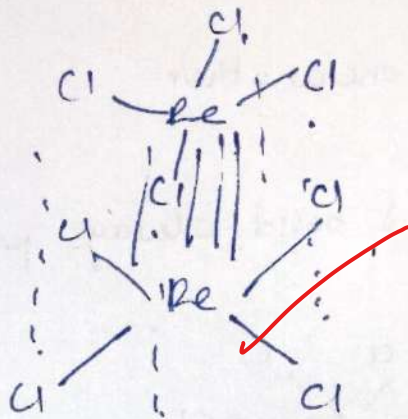 Cl
Cl Cl
Re
Cl
Cl Cl
Re
Cl Cl